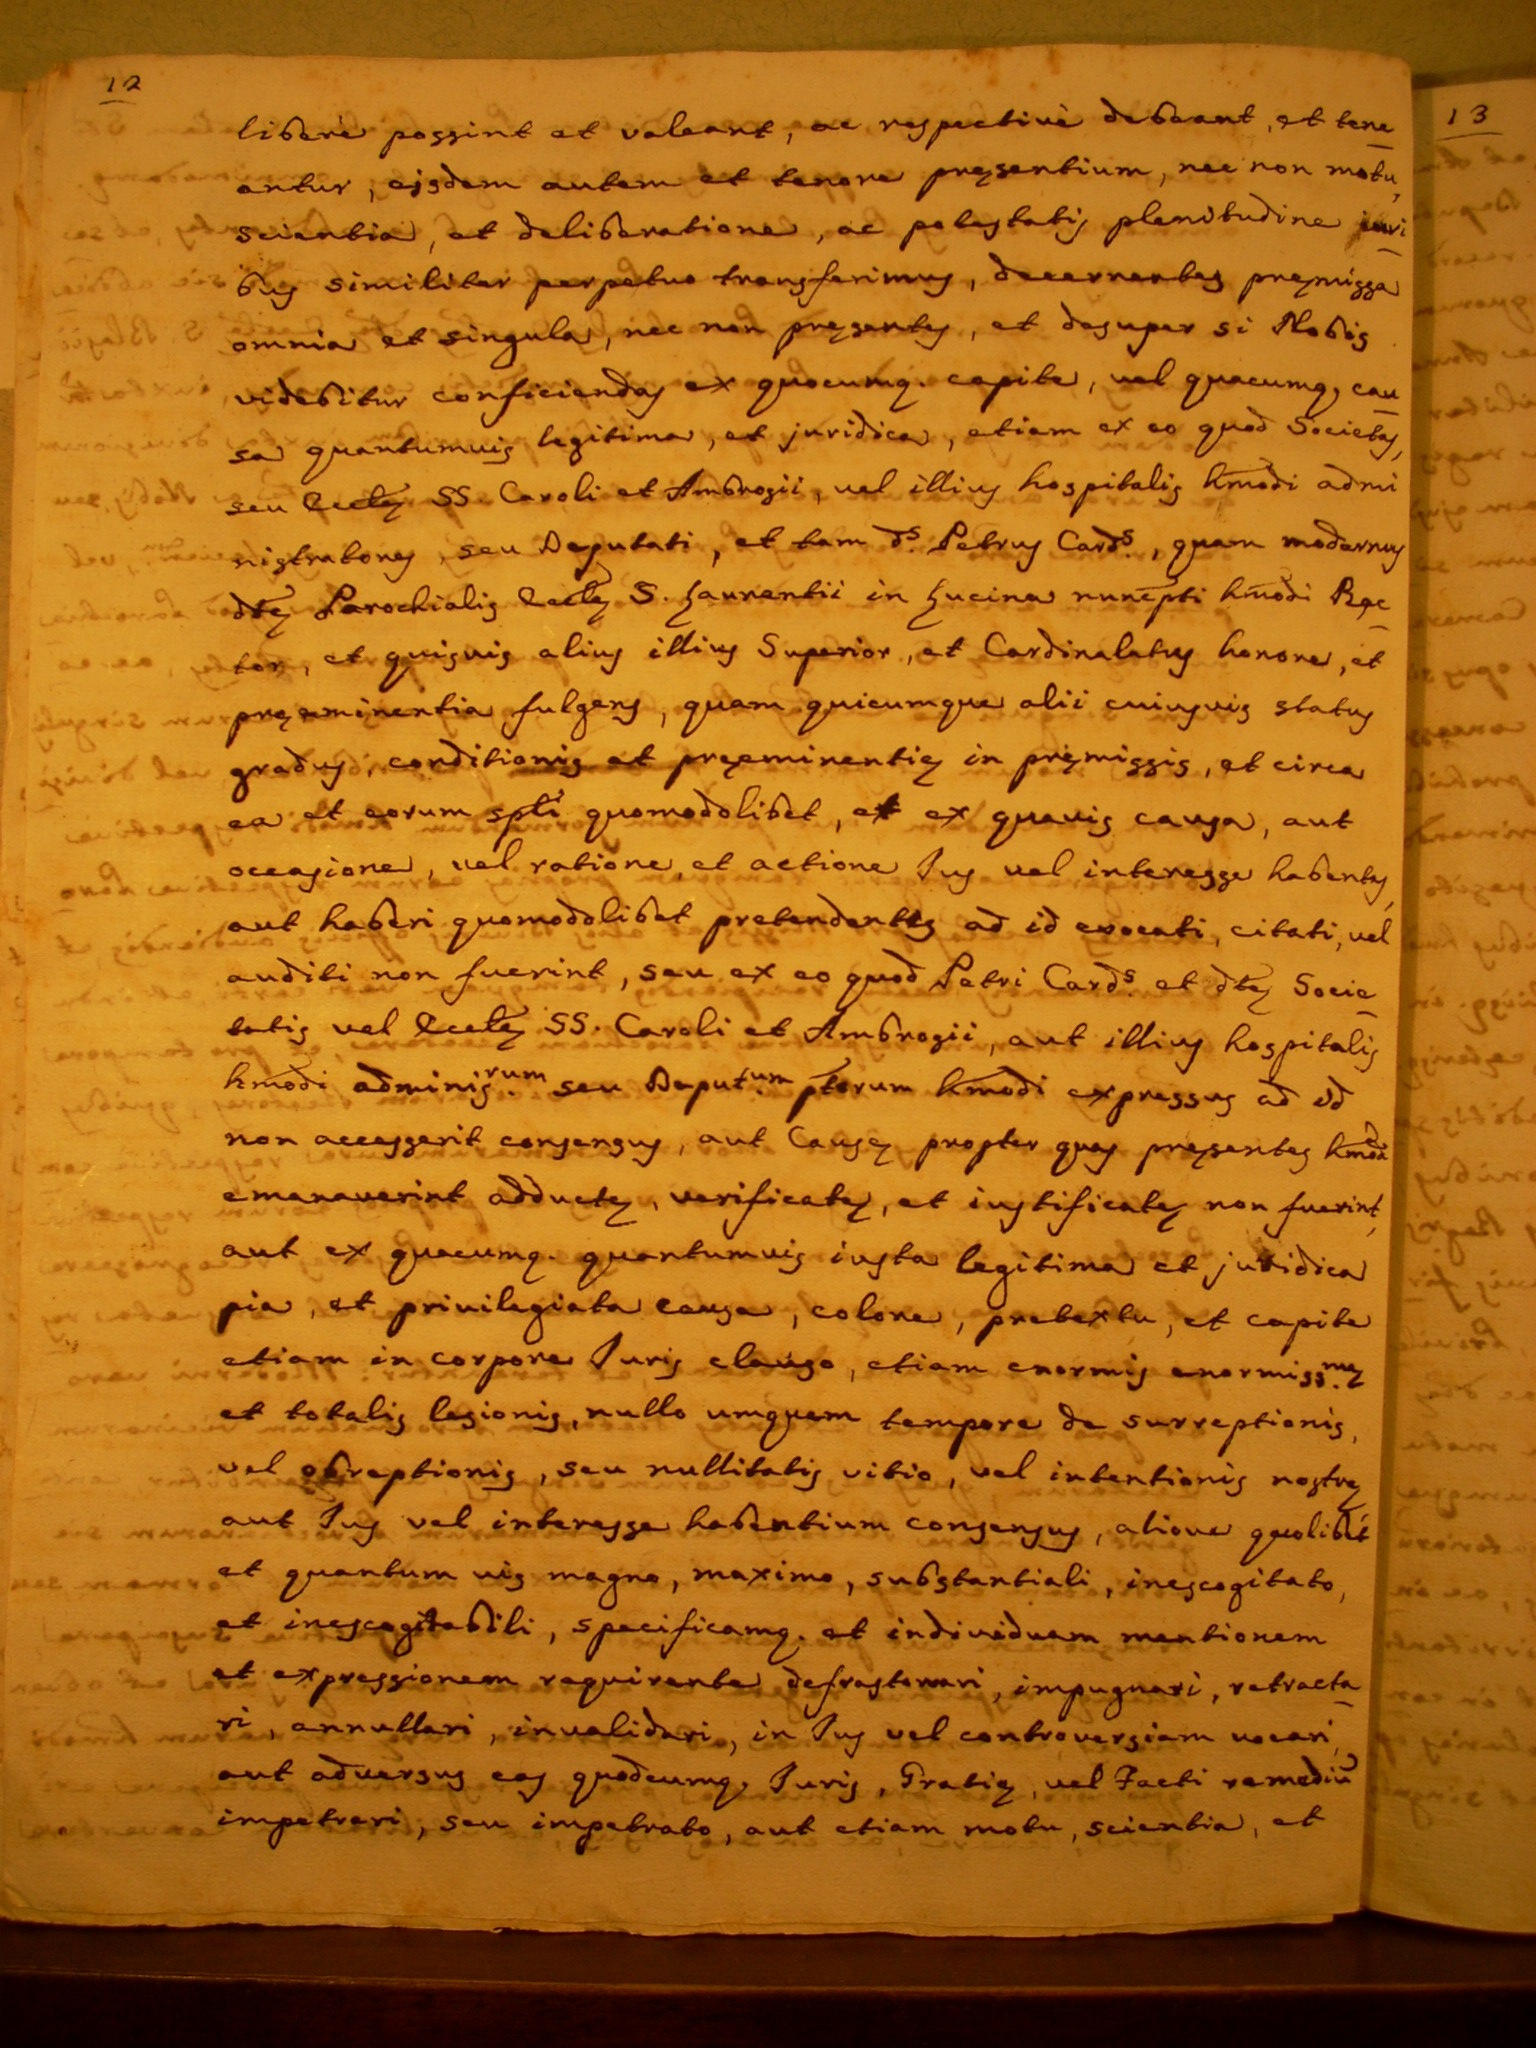 12
liberè possint et valeant, ac respectivè debeant, et tene
antur, eisdem autem et tenore pręsentium, nec non motu,
scientia, et deliberatione, ac potestatis plenitudine iuri
bus similiter perpetuo transferimus, decernentes pręmissa
omnia et singula, nec non pręsentes, et desuper si Nobis
videbitur conficiendas ex quocumq. capite, vel quacumq, cau
sa quantumuis legitima, et juridica, etiam ex eo quod Societas,
seu Eccłę SS. Caroli et Ambrosii, vel illius hospitalis hmõdi admi
nistratores, seu Deputati, et tam ds. Petrus Cards., quam modernus
dtę Parochialis Eccłę S. Laurentii in Lucina nunc̄pti hmõdi Rec
tor, et quisuis alius illius Superior, et Cardinalatus honore, et
pręeminentia fulgens, quam quicumque alii cuiusuis status
gradus, conditionis et pręeminentię in pręmissis, et circa
ea et eorum spłi quomodolibet, et ex quauis causa, aut
occasione, vel ratione, et actione Jus vel interesse habentes,
aut haberi quomodolibet pretendentes ad id evocati, citati, vel
auditi non fuerint, seu ex eo quod Petri Cards. et dtę Socie
tatis vel Eccłę SS. Caroli et Ambrosii, aut illius hospitalis
hmõdi adminisrum. seu Deputum. pt̄orum hmõdi expressus ad id
non accesserit consensus, aut Causę propter quas pręsentes hmõdi
emanaverint adductę, verificatę, et iustificatę non fuerint,
aut ex quacumq. quantumuis iusta legitima et juridica
pia, et privilegiata causa, colore, pretextu, et capite
etiam in corpore Juris clauso, etiam enormis enormissmę
et totalis lesionis, nullo umquam tempore de surreptionis,
vel obreptionis, seu nullitatis vitio, vel intentionis nostrę
aut Jus vel interesse habentium consensus, aliove quolibet
et quantum uis magno, maximo, substantiali, inescogitato,
et inescogitabili, specificamq. et individuam mentionem
et expressionem requirente defrastorari, impugnari, retracta
ri, annullari, invalidari, in Jus vel controversiam vocari,
aut adversus eas quodcumq, Juris, Gratię, vel Facti remediū
impetrari, seu impetrato, aut etiam motu, scientia, et
13